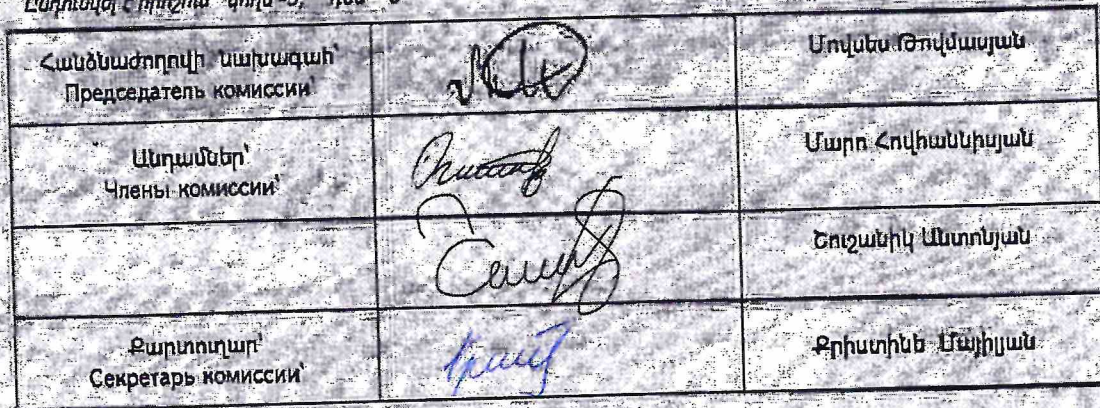 Հանձնաժողովի նախագահ՝
Председатель комиссии՝
Մովսես Թովմասյան
Անդամներ՝
Члены комиссии՝
Մարո Հովհաննիսյան
Շուշանիկ Անտոնյան
Քարտուղար՝
Секретарь комиссии՝
Քրիստինե Մայիլյան